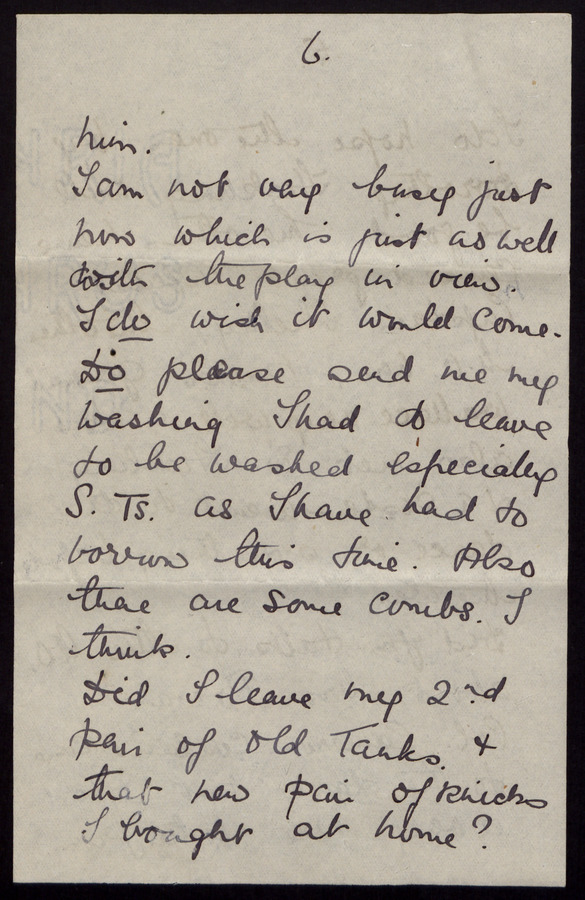 6.
him.
I am not very busy just
now which is just as well
with the play in view.
I do wish it would come.
Do please send me my
washing I had to leave
to be washed especially
S. Ts. as I have had to
borrow this time. Also
there are some combs. I
think.
Did I leave my 2nd
pair of old Tanks. +
that new pair of knicks
I bought at home?